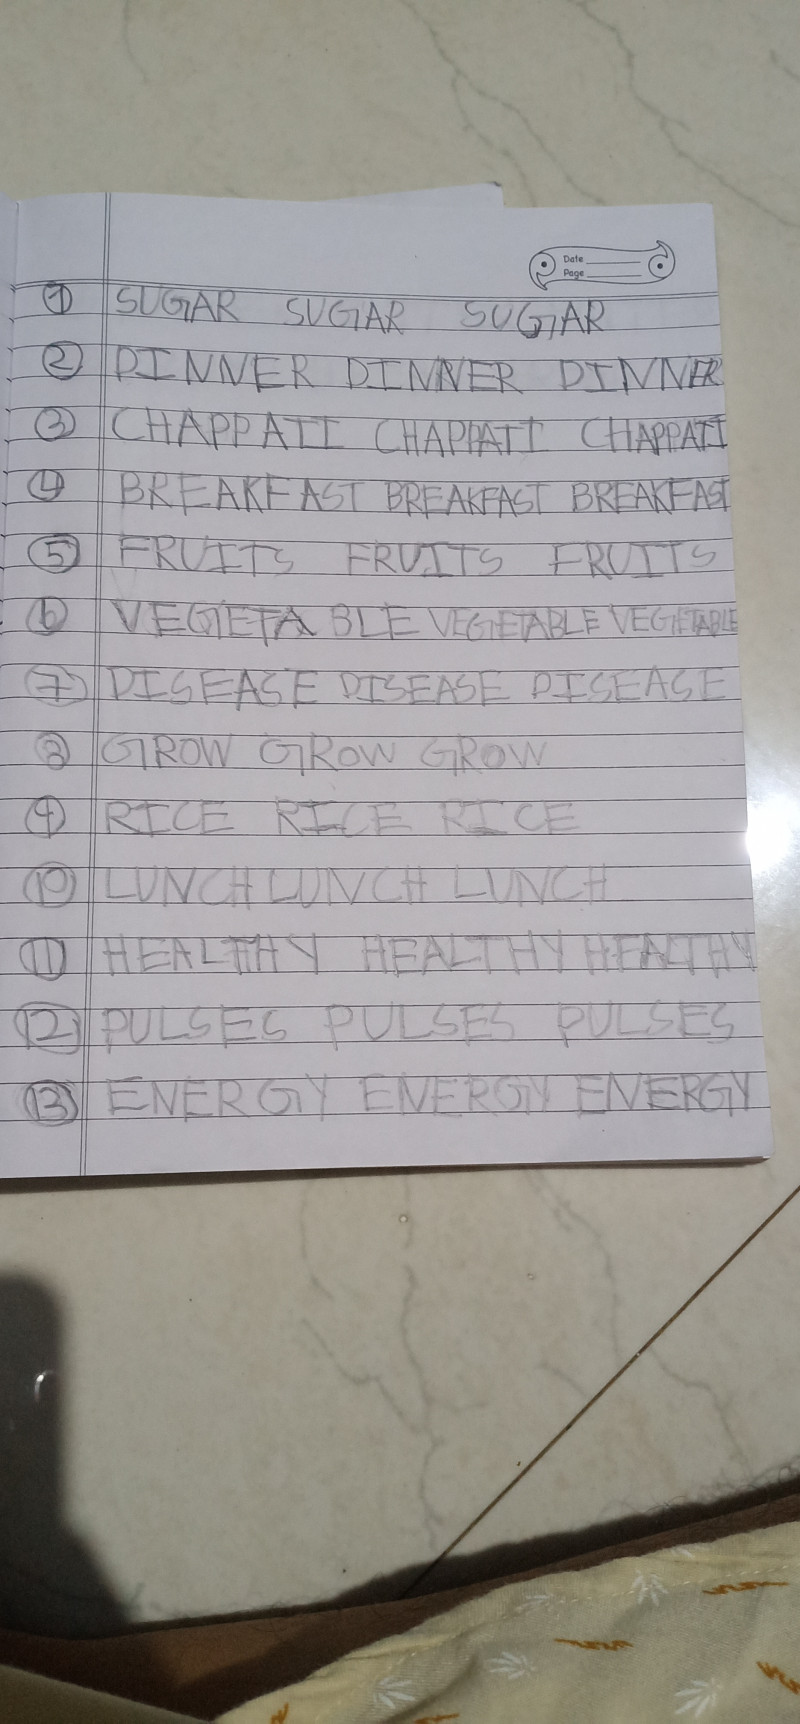 Date
Page
1 SUGAR SUGAR SUGAR
2 DINNER DINNER DINNER
3 CHAPPATI CHAPPATI CHAPPATI
4 BREAKFAST BREAKFAST BREAKFAST
5 FRUITS FRUITS FRUITS
6 VEGETABLE VEGETABLE VEGETABLE
7 DISEASE DISEASE DISEASE
8 GROW GROW GROW
9 RICE RICE RICE
10 LUNCH LUNCH LUNCH
11 HEALTHY HEALTHY HEALTHY
12 PULSES PULSES PULSES
13 ENERGY ENERGY ENERGY